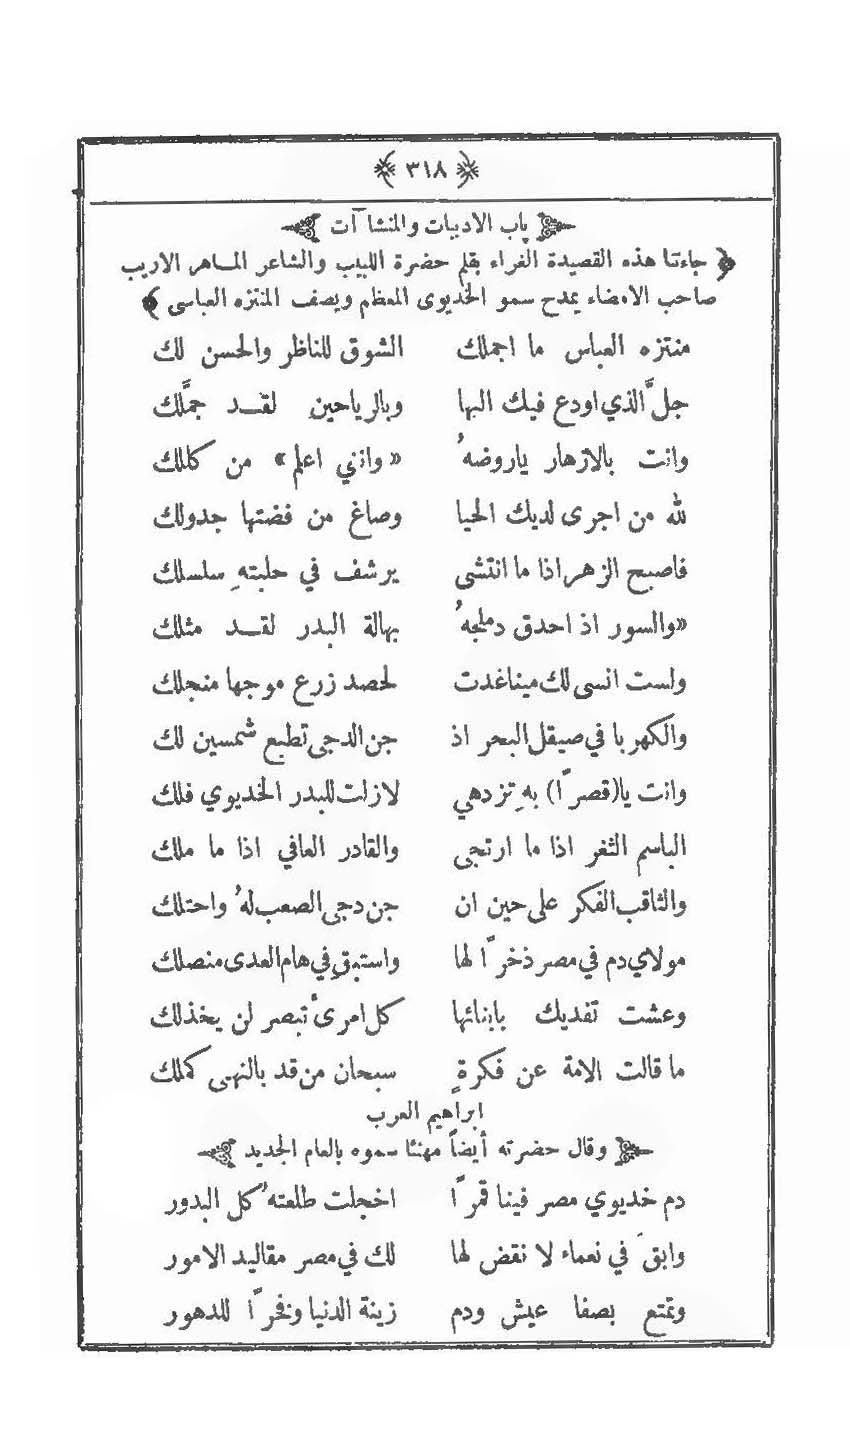 ﴿ ٣١٨ ﴾
باب الادبيات والمنشاآت
﴿ جاءتنا هذه القصيدة الغراء بقلم حضرة اللبيب والشاعر الماهر الاريب
صاحب الامضاء يمدح سمو الخديوى المعظم ويصف المنتزه العباسى ﴾
منتزه العباس ما اجملك الشوق للناظر والحسن لك
جلَّ الذي اودع فيك البها وبالرياحين لقد جمَّلك
وانت بالازهار ياروضهُ «وانني اعلم» من كللك
لله من اجرى لديك الحيا وصاغ من فضتها جدولك
فاصبح الزهر اذا ما انتشى يرشف في حلبتهِ سلسلك
«والسور اذ احدق دملجهُ بهالة البدر لقد مثلك
ولست انسى لك مينا غدت لحصد زرع موجها منجلك
والكهربا في صيقل البحر اذ جن الدجى تطبع شمسين لك
وانت يا(قصرًا) بهِ تزدهي لازلت للبدر الخديوي فلك
الباسم الثغر اذا ما ارتجى والقادر العافي اذا ما ملك
والثاقب الفكر على حين ان جن دجى الصعب لهُ واحتلك
مولاي دم في مصر ذخرًا لها واستبقِ في هام العدى منصلك
وعشت تفديك بابنائها كل امرىء تبصر لن يخذلك
ما قالت الامة عن فكرةٍ سبحان من قد بالنهى كملك
ابراهيم العرب
وقال حضرته أيضاً مهنئا سموه بالعام الجديد
دم خديوي مصر فينا قمرًا اخجلت طلعتهُ كل البدور
وابقَ في نعماء لا نقض لها لك في مصر مقاليد الامور
وتمتع بصفا عيش ودم زينة الدنيا وفخرًا للدهور